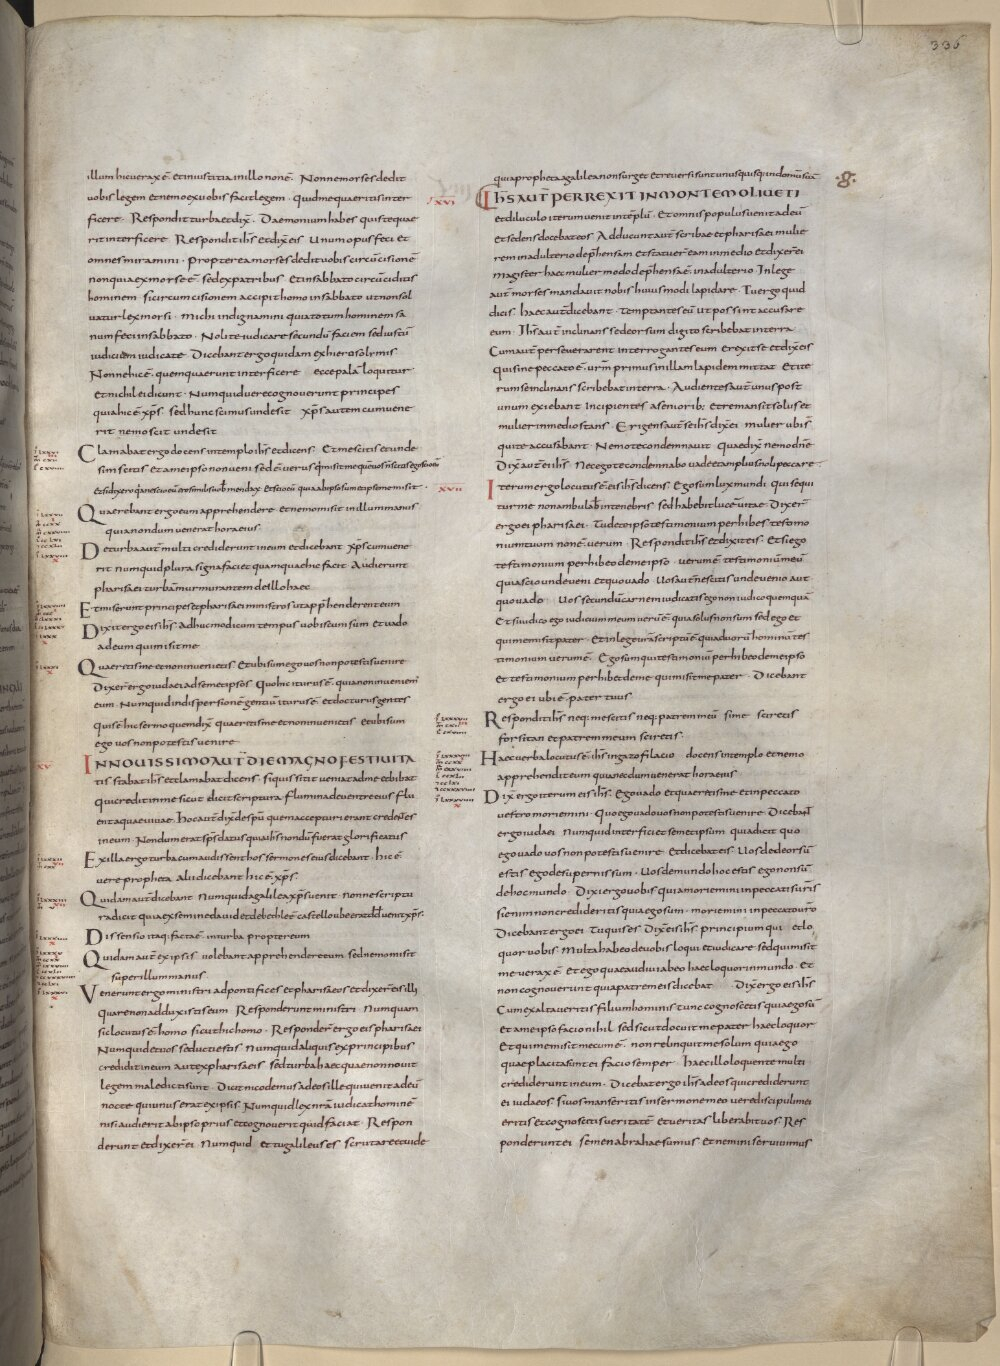 336
illum hic verax ē. et iniustitia in illo non ē. Nonne moyses dedit
vobis legem et nemo ex vobis facit legem. Quid me quaeritis inter
ficere. Respondit turba et dix̄. Daemonium habes quis te quae
rit interficere. Respondit ih̄s et dix̄ eis Unum opus feci et
omnes miramini. Propterea moyses dedit vobis circūcisionē
non quia ex moyse ē. sed ex patribus Et in sabbato circūciditis
hominem. si circumcisionem accipit homo in sabbato ut non sol
vatur lex moysi. Michi indignamini quia totum hominem sa
num feci in sabbato. Nolite iudicare secundū faciem sed iustū
iudicium iudicate. Dicebant ergo quidam ex hierosolymis
Nonne hic ē. quem quaerunt interficere ecce palā loquitur
et nichil ei dicunt. Numquid vere cognoverunt principes
quia hic ē xp̄s. sed hunc scimus unde sit xp̄s autem cum vene
rit nemo scit unde sit
Clamabat ergo docens in templo ih̄s et dicens. Et me scitis et unde
sim scitis et a me ipso non veni sed ē verus q̄ misit me quem vos nescitis ego scio eū
Et si dixero q̄a nescio eū ero similis vob̄ mendax Et scio eū quia ab ipso sum et ipse me misit.
Quaerebant ergo eum apprehendere et nemo misit in illum manus
quia nondum venerat hora eius
De turba aut̄ multi crediderunt in eum et dicebant xp̄s cum vene
rit numquid plura signa faciet quam quae hic facit Audierunt
pharisaei turbā murmurantem de illo haec
Et miserunt principes et pharisaei ministros ut app̄henderent eum
Dixit ergo eis ih̄s Adhuc modicum tempus vobiscum sum et vado
ad eum qui misit me
Quaeritis me et non invenietis Et ubi sum ego vos non potestis venire
Dixer̄ ergo iudaei ad semetipsos Quo hic iturus ē. quia non inveniem̄
eum. Numquid in dispersionē gentiū iturus ē. et docturus gentes
Quis ē hic sermo quem dix̄ quaeretis me et non invenietis et ubi sum
ego vos non potestis venire
XV
IN NOVISSIMO AUT̄ DIE MAGNO FESTIVITA
tis stabat ih̄s et clamabat dicens. si quis sitit veniat ad me et bibat
Qui credit in me sicut dicit scriptura flumina de ventre eius flu
ent aquae vivae. Hoc aut̄ dix̄ de sp̄u quem accepturi erant credentes
in eum. Nondum erat sp̄s datus quia ih̄s nondū fuerat glorificatus
Ex illa ergo turba cum audissent hos sermones eius dicebant. hic ē
vere propheta alii dicebant hic ē xp̄s.
Quidam aut̄ dicebant Numquid a galilea xp̄s venit. nonne scriptu
ra dicit quia ex semine david et de bethleē castello ubi erat dd̄ venit xp̄s.
Dissensio itaq; facta ē. in turba propter eum
Quidam aut̄ ex ipsis volebant apprehendere eum sed nemo misit
super illum manus
Venerunt ergo ministri ad pontifices et pharisaeos et dixer̄ eis illi
quare non adduxistis eum Responderunt ministri Numquam
sic locutus ē homo sicut hic homo. Responder̄ ergo eis pharisaei
Numquid et vos seducti estis Numquid aliquis ex principibus
credidit in eum aut ex pharisaeis sed turba haec quae non novit
legem maledicti sunt. Dicit nicodemus ad eos ille qui venit ad eū
nocte qui unus erat ex ipsis Numquid lex n̄ra iudicat hominē
nisi audierit ab ipso prius et cognoverit quid faciat. Respon
derunt et dixer̄ ei Numquid et tu galileus es scrutare et vide
quia propheta a galilea non surget Et reversi sunt unusquisq; in domū suā
.g.
XVI
Ih̄S AUT̄ PERREXIT IN MONTEM OLIVETI
et diluculo iterum venit in tēplū. Et omnis populus venit ad eū
et sedens docebat eos Adducunt aut̄ scribae et pharisaei mulie
rem in adulterio dep̄hensam et statuer̄ eam in medio et dixer̄ ei
Magister haec mulier modo dep̄hensa ē. in adulterio In lege
aut̄ moyses mandavit nobis huiusmodi lapidare. Tu ergo quid
dicis haec aut̄ dicebant. temptantes eū ut possint accusare
eum. Ih̄s aut̄ inclinans se deorsum digito scribebat in terra
Cum aut̄ perseverarent interrogantes eum erexit se et dix̄ eis
Qui sine peccato ē. vr̄m primus in illam lapidem mittat Et ite
rum se inclinans scribebat in terra. Audientes aut̄ unus post
unum exiebant incipientes aseniorib; Et remansit solus et
mulier in medio stans. Erigens aut̄ se ih̄s dix̄ ei mulier ubi s̄
qui te accusabant Nemo te condemnavit Quae dix̄ nemo dn̄e
Dix̄ aut̄ ei ih̄s Nec ego te condennabo vade et amplius noli peccare.
XVII
Iterum ergo locutus ē eis ih̄s dicens. Ego sum lux mundi. qui sequi
tur me non ambulab̄ in tenebris sed habebit lucē vitae. Dixer̄
ergo ei pharisaei. Tu de te ipso testimonium perhibes testimo
nium tuum non ē. verum. Respondit ih̄s et dixit eis. Et si ego
testimonium perhibeo de me ipso. verum ē testimoniū meū
quia scio unde veni et quo vado Vos aut̄ nescitis unde venio aut
quo vado. Vos secundū carnem iudicatis ego non iudico quemquā
Et si iudico ego iudicium meum verū ē. quia solus non sum sed ego et
qui me misit pater. Et in lege vr̄a scriptū ē. quia duorū hominū tes
timonium verum ē. Ego sum qui testimoniū perhibeo de me ipso
et testimonium perhibet de me. qui misit me pater. Dicebant
ergo ei ubi ē. pater tuus
Respondit ih̄s neq; me scitis neq; patrem meū si me sciretis
forsitan et patrem meum sciretis.
Haec verba locutus ē. ih̄s in gazofilacio docens in templo et nemo
apprehendit eum quia necdum venerat hora eius
Dix̄ ergo iterum eis ih̄s. Ego vado et quaeretis me et in peccato
vestro moriemini. Quo ego vado vos non potestis venire Diceban̄
ergo iudaei Numquid interficiet semetipsum quia dicit quo
ego vado vos non potestis venire. Et dicebat eis. Vos de deorsū
estis ego de supernis sum. Vos de mundo hoc estis ego non sū
de hoc mundo. Dixi ergo vobis quia moriemini in peccatis vr̄is
si enim non credideritis quia ego sum. moriemini in peccato vr̄o
Dicebant ergo ei Tu quis es Dix̄ eis ih̄s principium qui et lo
quor vobis Multa habeo de vobis loqui et iudicare sed qui misit
me verax ē Et ego quae audivi ab eo haec loquor in mundo Et
non cognoverunt quia patrem eis dicebat Dix̄ ergo eis ih̄s
Cum exaltaveritis filium hominis tunc cognoscetis quia ego sū
et a me ipso facio nihil sed sicut docuit me pater haec loquor
Et qui me misit mecum ē. non relinquit me solum quia ego
quae placita sunt ei facio semper. haec illo loquente multi
crediderunt in eum. Dicebat ergo ih̄s ad eos qui crediderunt
ei iudaeos si vos manseritis in sermone meo vere discipuli mei
eritis et cognoscetis veritatē et veritas liberabit vos Res
ponderunt ei semen abrahae sumus et nemini servivimus